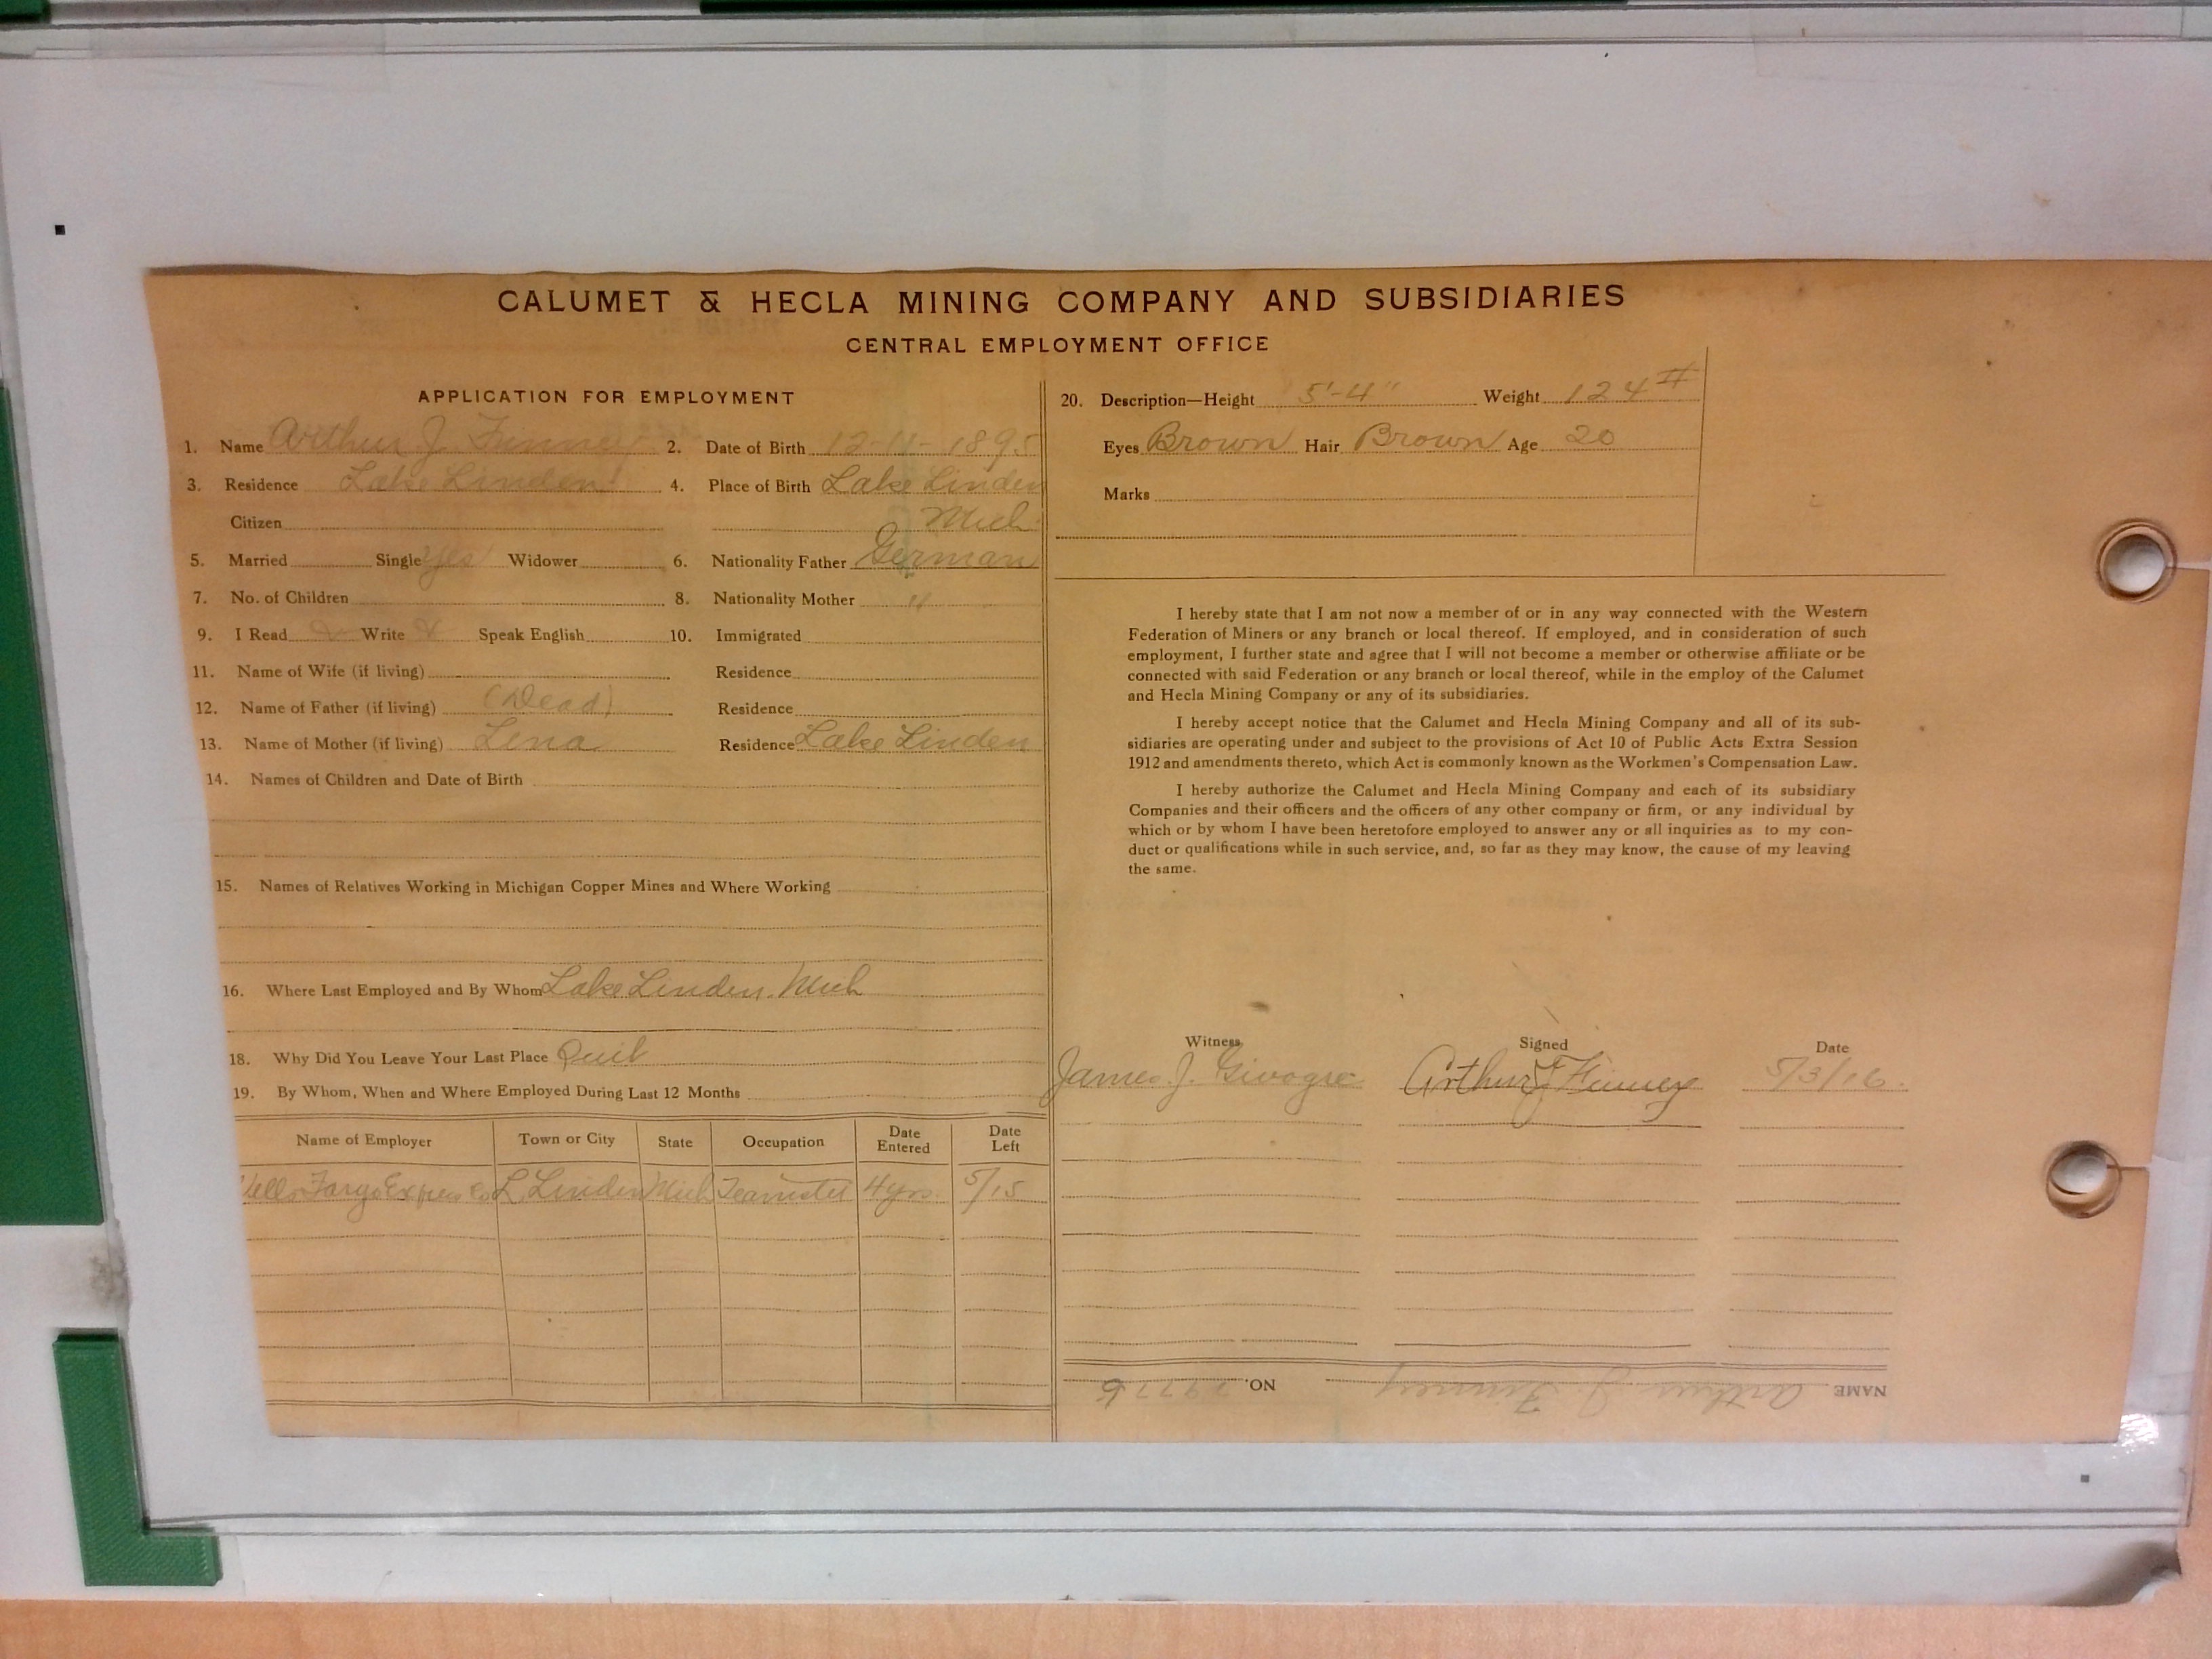 CALUMET & HECLA MINING COMPANY AND SUBSIDIARIES
CENTRAL EMPLOYMENT OFFICE
APPLICATION FOR EMPLOYMENT
1. Name Arthur J. Finney 2. Date of Birth 12-11-1895
3. Residence Lake Linden 4. Place of Birth Lake Linden
Citizen Mich
5. Married Single yes Widower 6. Nationality Father German
7. No. of Children 8. Nationality Mother "
9. I Read Write Speak English 10. Immigrated
11. Name of Wife (if living) Residence
12. Name of Father (if living) (Dead) Residence
13. Name of Mother (if living) Lena Residence Lake Linden
14. Names of Children and Date of Birth
15. Names of Relatives Working in Michigan Copper Mines and Where Working
16. Where Last Employed and By Whom Lake Linden. Mich
18. Why Did You Leave Your Last Place Quit
19. By Whom, When and Where Employed During Last 12 Months
Name of Employer Town or City State Occupation Date Entered Date Left
Wells Fargo Express Co L. Linden Mich Teamster 4 yrs. 5/15
20. Description—Height 5'-4" Weight 124#
Eyes Brown Hair Brown Age 20
Marks
I hereby state that I am not now a member of or in any way connected with the Western
Federation of Miners or any branch or local thereof. If employed, and in consideration of such
employment, I further state and agree that I will not become a member or otherwise affiliate or be
connected with said Federation or any branch or local thereof, while in the employ of the Calumet
and Hecla Mining Company or any of its subsidiaries.
I hereby accept notice that the Calumet and Hecla Mining Company and all of its sub-
sidiaries are operating under and subject to the provisions of Act 10 of Public Acts Extra Session
1912 and amendments thereto, which Act is commonly known as the Workmen's Compensation Law.
I hereby authorize the Calumet and Hecla Mining Company and each of its subsidiary
Companies and their officers and the officers of any other company or firm, or any individual by
which or by whom I have been heretofore employed to answer any or all inquiries as to my con-
duct or qualifications while in such service, and, so far as they may know, the cause of my leaving
the same.
Witness Signed Date
James J. Arthur J Finney 5/3/16.
NAME Arthur J. Finney NO.